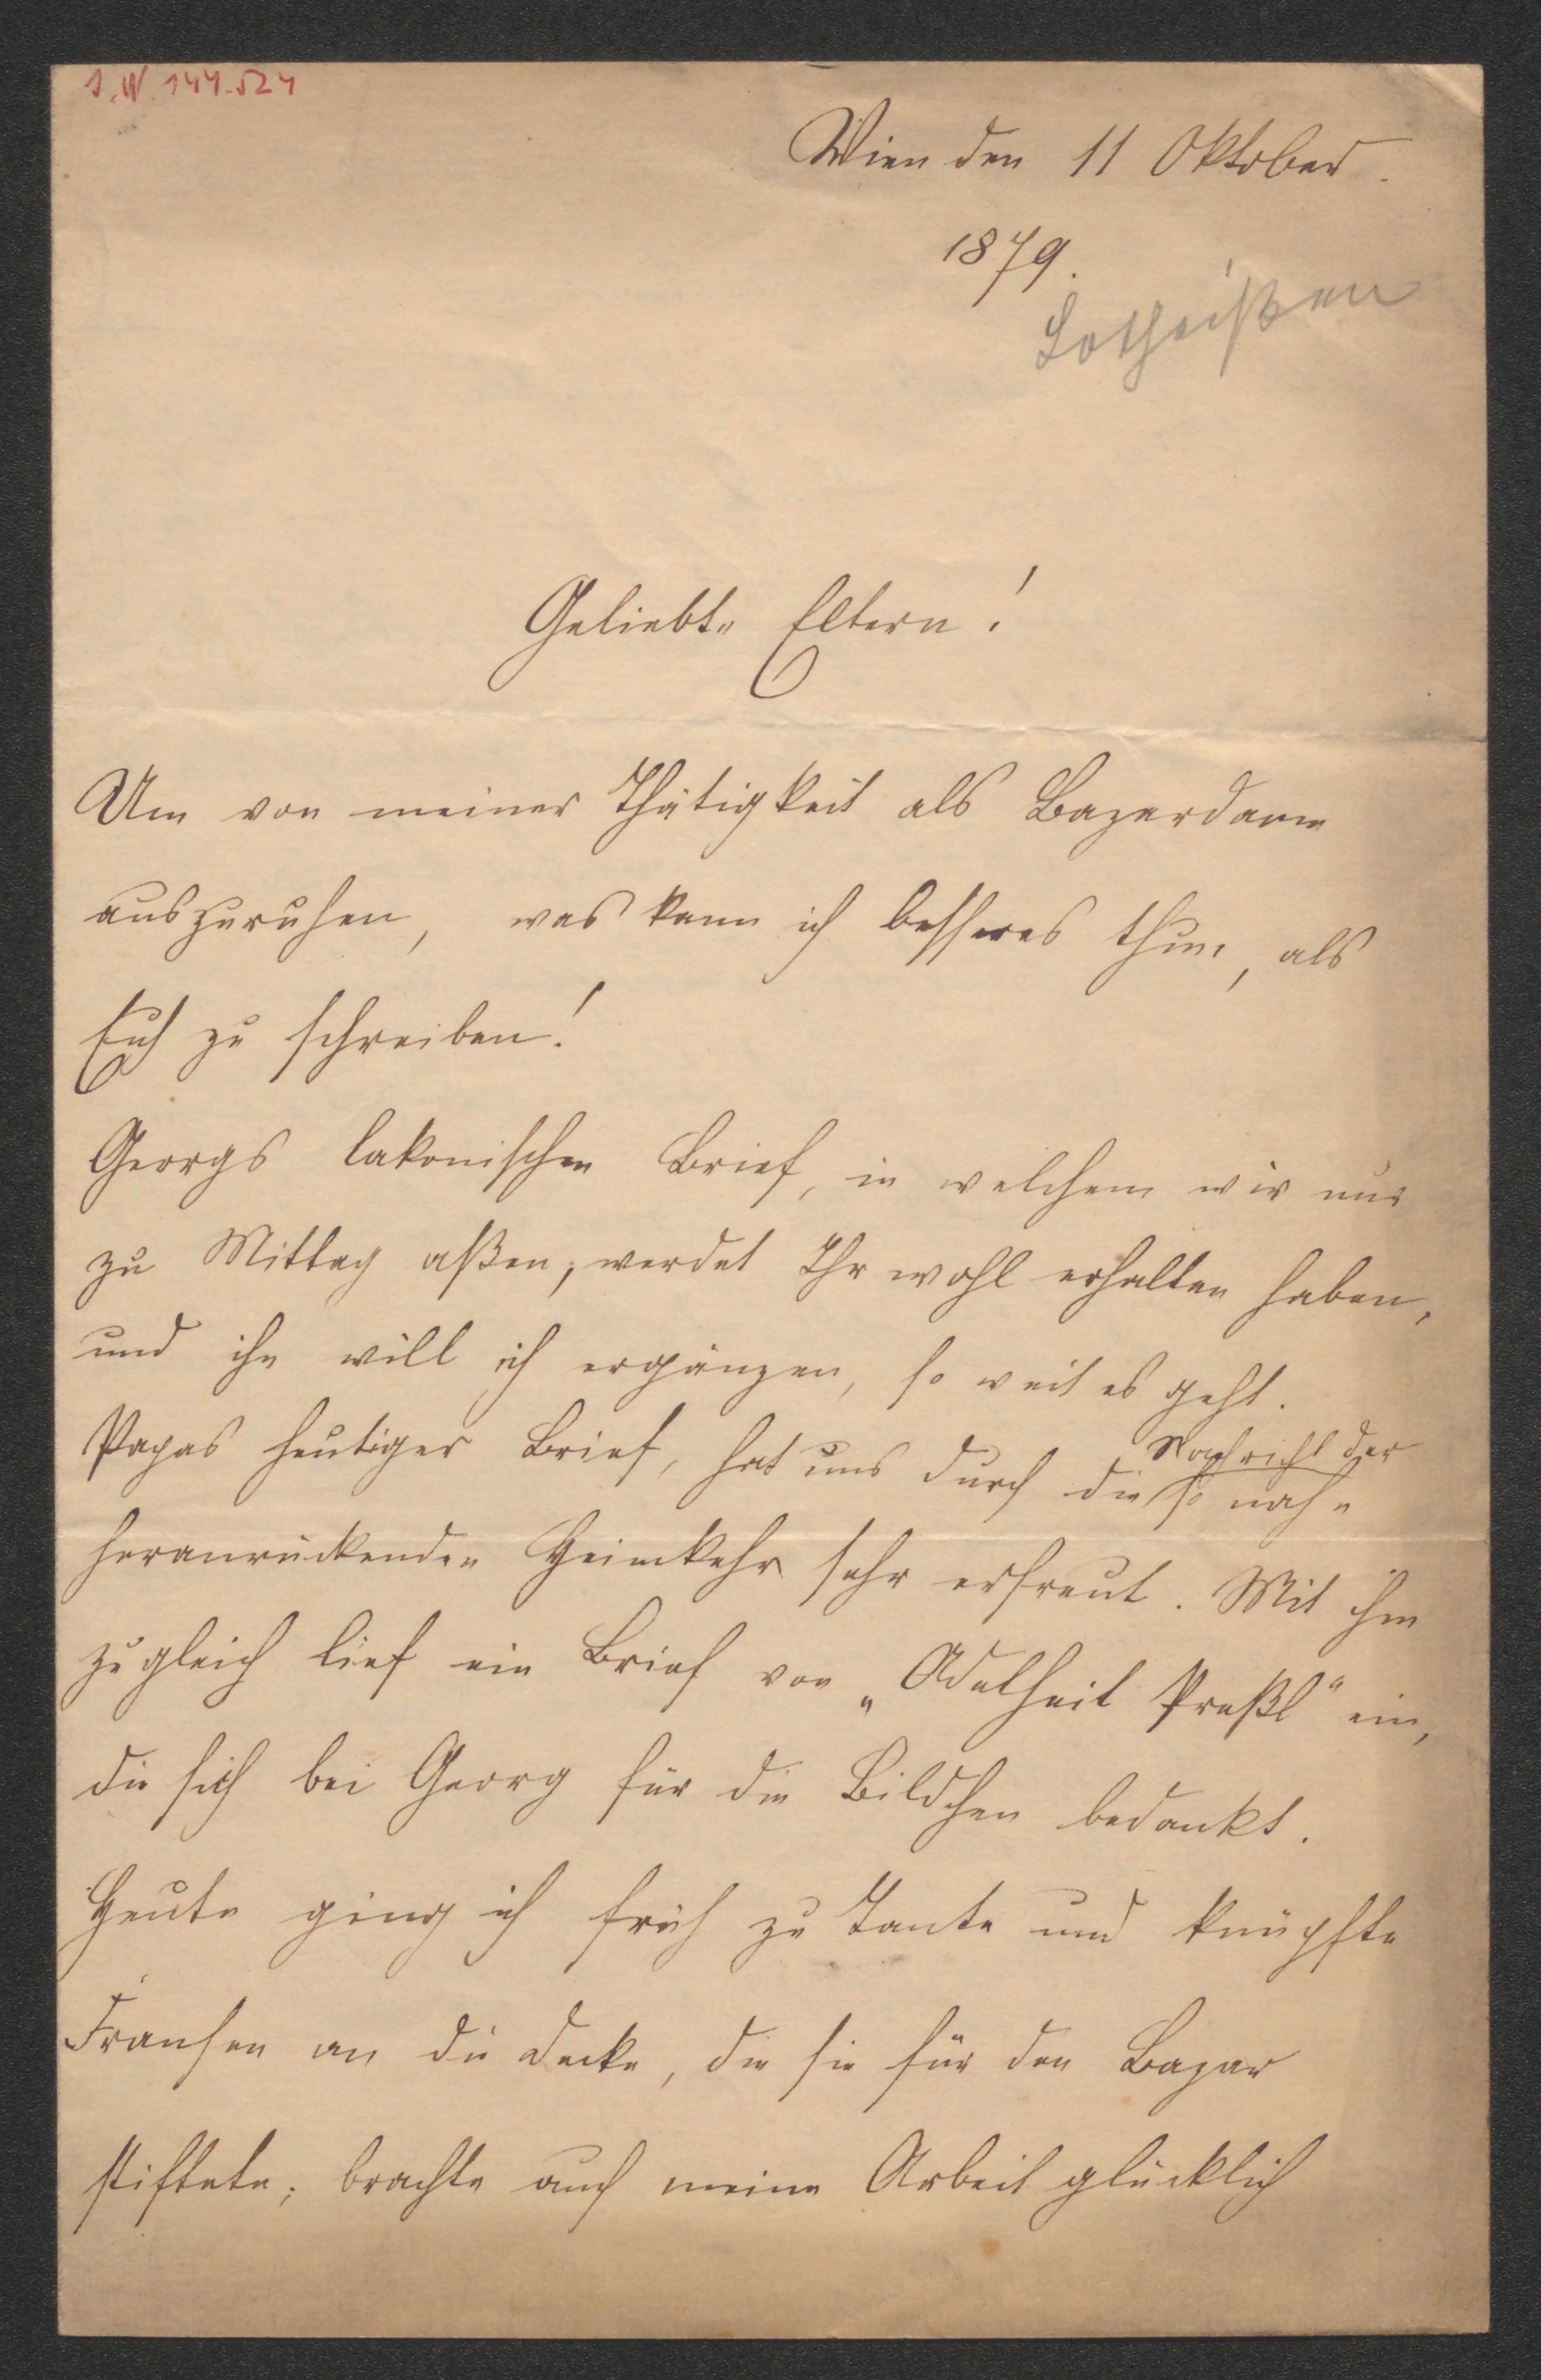 J.N. 144.524
Wien den 11 Oktober.
1879.
Lotheißen
Geliebte Eltern!
Um von meiner Thätigkeit als Bazardame
auszuruhen, was kann ich besseres thun, als
Euch zu schreiben!
Georgs lakonischen Brief, in welchem wir nur
zu Mittag aßen, werdet Ihr wohl erhalten haben,
und ihn will ich ergänzen, so weit es geht.
Nachricht der
Papas heutiger Brief, hat uns durch die so nahe
heranrückenden Heimkehr sehr erfreut. Mit ihm
zugleich lief ein Brief von „Adelheit Preßl" ein,
die sich bei Georg für die Bildchen bedankt.
Heute ging ich früh zu Tante und knüpfte
Fransen an die Decke, die sie für den Bazar
stiftete; brachte auch meine Arbeit glücklich